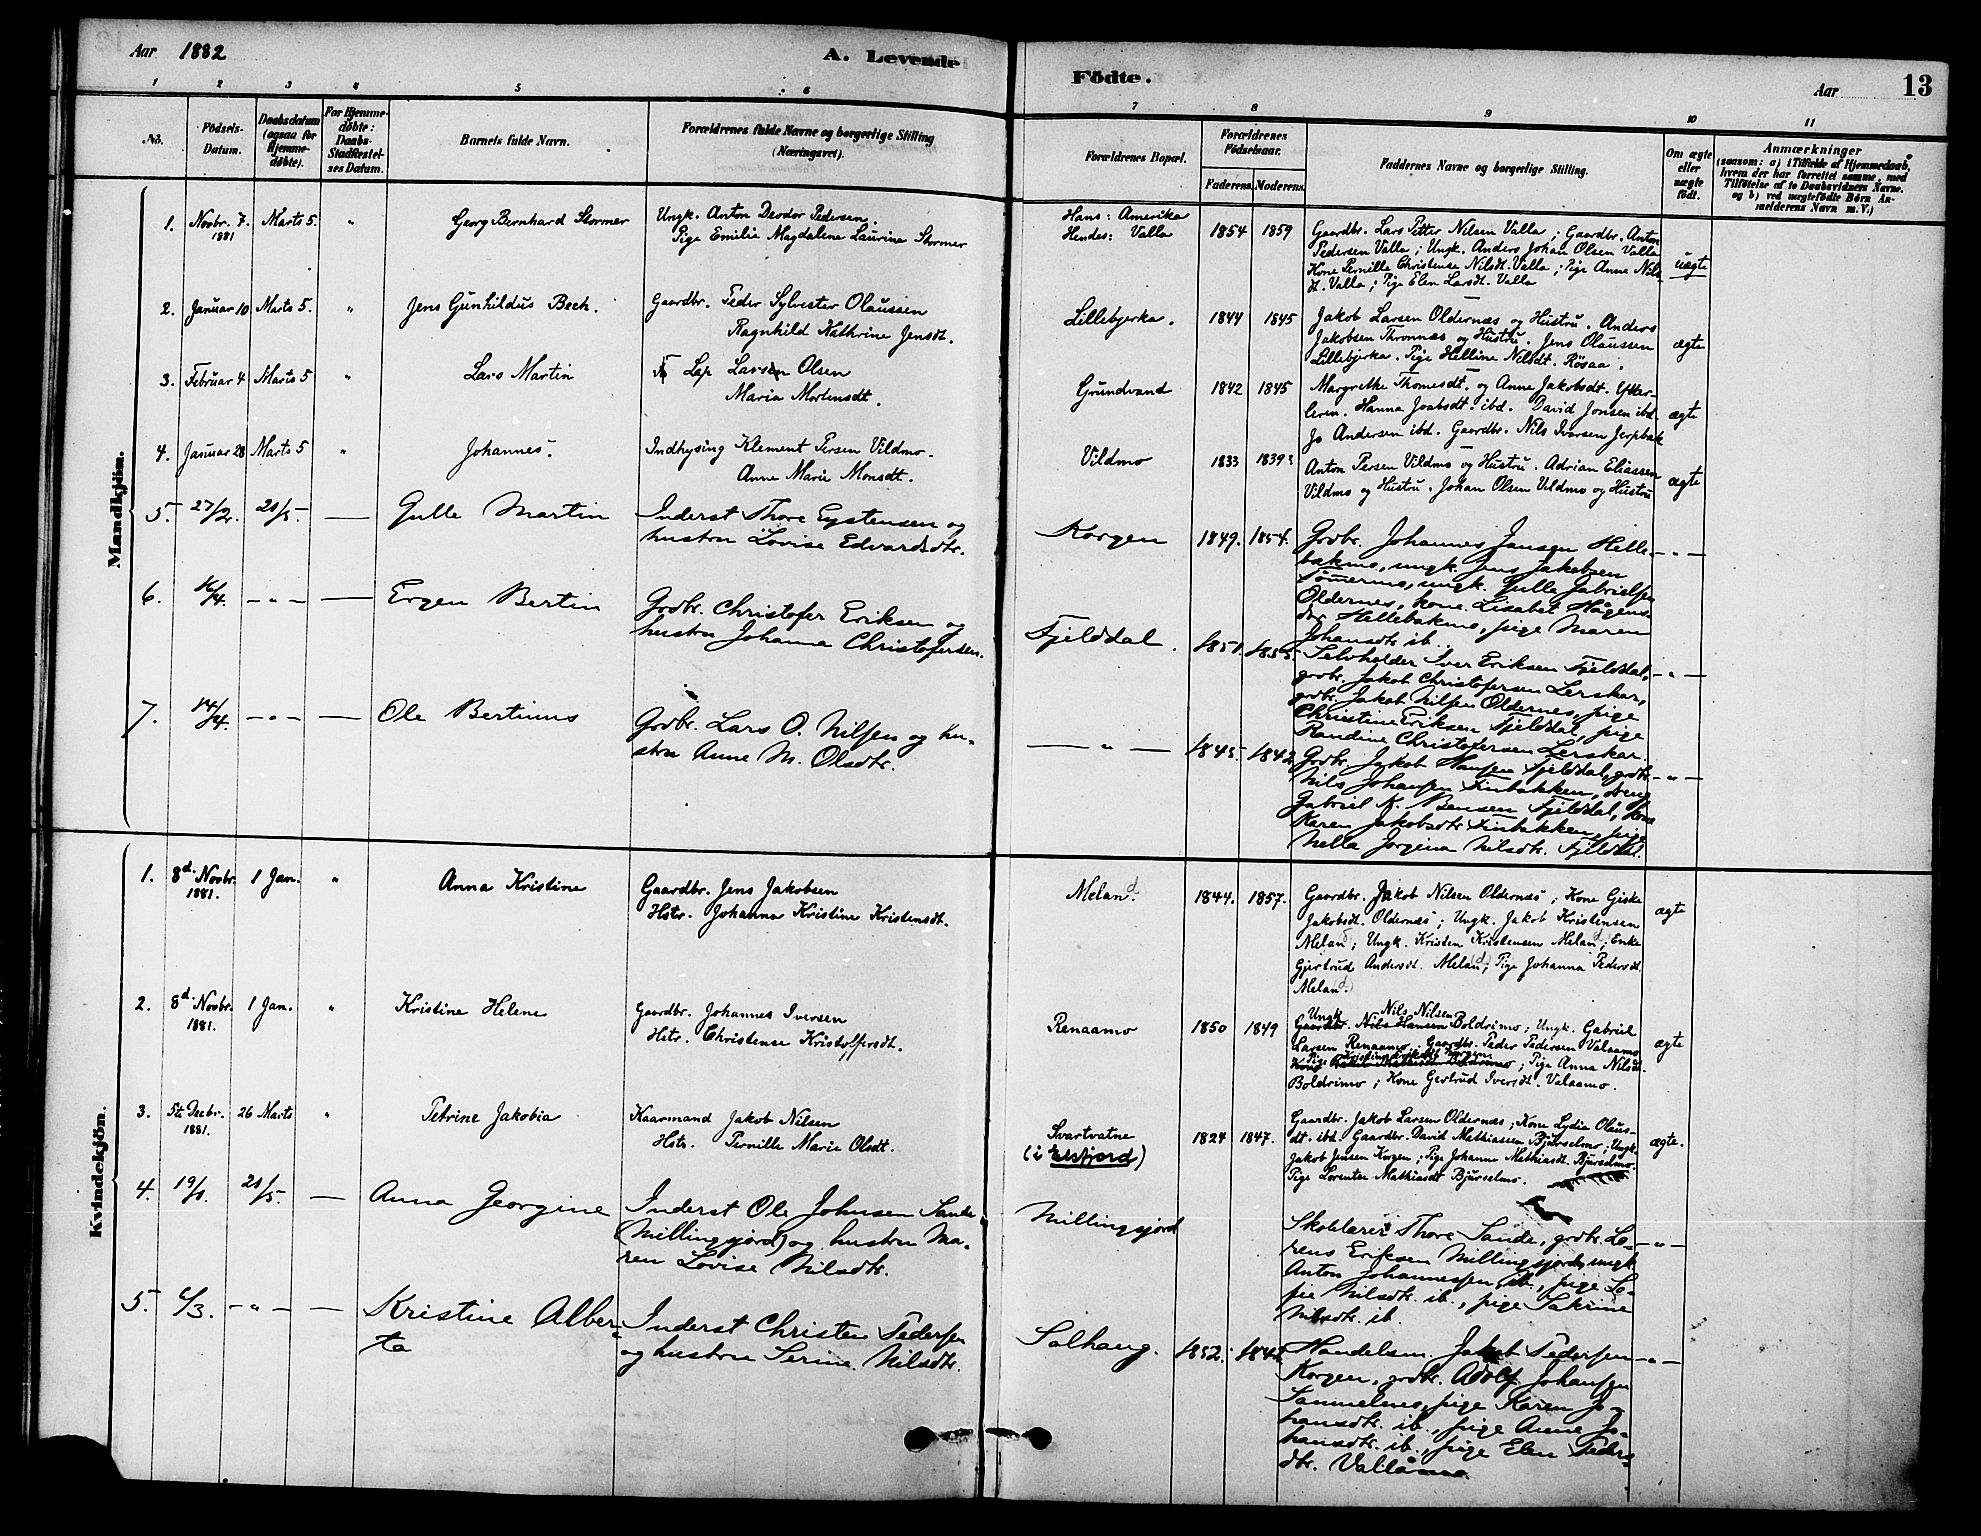 Aar 1882
A. Levende
Födte.
Aar
13
1 2 3 4 5 6 7 8 9 10 11
No.
Födsels-
Datum.
Daabsdatum
(ogsaa for
Hjemme-
døbte).
For Hjemme-
døbte:
Daabs-
Stadfæstel-
ses Datum.
Barnets fulde Navn.
Forældrenes fulde Navne og borgerlige Stilling
(Næringsvei).
Forældrenes Bopæl.
Forældrenes
Födselsaar.
Faderens. Moderens.
Faddernes Navne og borgerlige Stilling.
Om ægte
eller
uægte
födt.
Anmærkninger
(saasom: a) i Tilfælde af Hjemmedaab,
hvem der har forrettet samme, med
Tilföielse af to Daabsvidners Navne.
og b) ved uægtefödte Börn An-
melderens Navn m.V.)
Mandkjön.
1. Novbr. 7. Marts 5. " Georg Bernhard Stormer Ungk. Anton Deodor Pedersen.
1881 Pige Emilie Magdalena Laurina Stormer
Hans: Amerika
Hendes: Valla 1854 1859
Gaardbr. Lars Petter Nilsen Valla; Gaardbr. Anton
Pedersen Valla; Ungk. Anders Johan Olsen Valla
Kone Pernilla Christense Nilsdt. Valla; Pige Anne Nils
dt. Valla; Pige Elen Larsdt. Valla
uægte
2. Januar 10 Marts 5. " Jens Gunhildus Bech. Gaardbr. Peder Sylvester Olaussen
Ragnhild Kathrine Jensdt.
Lillebjerka. 1844 1845
Jakob Larsen Oldernæs og Hustru. Anders
Jakobsen Thronnæs og Hustru. Jens Olaussen
Lillebjerka. Pige Helline Nelsdt. Røsaa.
ægte
3. Februar 4 Marts 5 " Lars Martin Lap Larsen Olsen
Maria Mortensdt.
Grundvand 1842 1845
Margrethe Thomesdt. og Anne Jakobsdt. Ytter-
leren. Hanna Joabsdt. ibd. David Jonsen ibd.
Jo Andersen ibd. Gaardbr. Nils Iversen Jerpbak
ægte
4. Januar 28 Marts 5 " Johannes. Indhysing Klement Persen Vildmo.
Anne Marie Monsdt.
Vildmo 1833 1839?
Anton Persen Vildmo og Hustru. Adrian Eliassen
Vildmo og Hustru. Johan Olsen Vildmo og Hustru
ægte
5. 27/2. 21/5. — Gulle Martin Inderst Thore Eystensen og
hustru Lovise Edvardsdtr.
Korgen 1849. 1854.
Grdbr. Johannes Jansen Helle-
bakmo, ungk. Jens Jakobsen
Tömmermo, ungk. Gulle Gabrielsen
Oldernes, kone Lisabet Hågens-
dtr Hellebakmo, pige Maren
Johansdtr ib.
— " —
6. 16/4. — " — — Ergen Bertin Grdbr. Christofer Eriksen og
hustru Johanna Christofersen.
Fjelddal. 1851. 1855.
Selvholder Iver Eriksen Fjelddal,
grdbr. Jakob Christofersen Lerskar,
grdbr. Jakob Nilsen Oldernes, pige
Christine Eriksen Fjelddal, pige
Randine Christofersen Lerskar.
— " —
7. 14/4. — " — — Ole Bertinus Grdbr. Lars O. Nilsen og hu-
stru Anne M. Olsdtr.
— " — 1845. 1842
Grdbr. Jakob Hansen Fjelddal, grdbr.
Nils Johansen Finbakken, dreng
Gabriel K. Bensen Fjelddal, kone
Karen Jakobsdtr Finbakken, pige
Nella Jorgina Nilsdtr. Fjelddal.
— " —
Kvindekjön.
1. 8d. Novbr. 1 Jan. " Anna Kristine Gaardbr. Jens Jakobsen
1881. Hstr. Johanna Kristine Kristensdt.
Meland. 1844. 1857.
Gaardbr. Jakob Nilsen Oldernæs; Kone Giske
Jakobsdt. Oldernæs; Ungk. Jakob Kristensen
Melan; Ungk. Kristen Kristensen Melan; Enke
Gjertrud Andersdt. Melan; Pige Johanna Pedersdt.
Melan.
ægte
2. 8d. Novbr. 1 Jan. " Kristine Helene Gaardbr. Johannes Iversen
1881. Hstr. Christense Kristoffersdt.
Renaamo 1850 1849
Ungk. Nils Nilsen
Gaardbr. Nils Hansen Boldrimo; Ungk. Gabriel
Larsen Renaamo; Gaardbr. Peder Pedersen Valaamo
Boldrimo; Pige Anna Nilsdt.
Boldrimo; Kone Gertrud Iversdt. Valaamo.
ægte
3. 5te Decbr. 26 Marts " Petrine Jakobia Kaarmand Jakob Nilsen
1881. Hstr. Pernille Marie Olsdt.
Svartvatne
(i Elsfjord) 1824 1847.
Gaardbr. Jakob Larsen Oldernæs; Kone Lydia Olaus-
dt. ibd. Gaardbr. David Mathiassen Bjurselmo; Ungk.
Jakob Jensen Korgen; Pige Johanne Mathiasdt. Bjurselmo.
Pige Lorentse Mathiasdt Bjurselmo.
ægte.
4. 19/1. 21/5. — Anna Georgine Inderst Ole Johnsen Sande
(Millingsjord) og hustru Ma-
ren Lovise Nilsdtr.
Millingsjord
Skolelærer Thore Sande, grdbr. Lo-
rens Eriksen Millingsjord, ungk.
Anton Johannessen ib., pige So-
fie Nilsdtr. ib., pige Sakrine
Nilsdtr. ib.
— " —
5. 6/3. — " — — Kristine Alber-
ta
Inderst Christen Pedersen
og hustru Serine Nilsdtr.
Solhaug. 1852.
Handelsm. Jakob Pedersen
Korgen, grdbr. Adolf Johansen
Sammelnes, pige Karen Jo-
hansdtr. ib., pige Anne Jo-
hansdtr. ib., pige Elen Peders-
dtr. Vallåmo
— " —